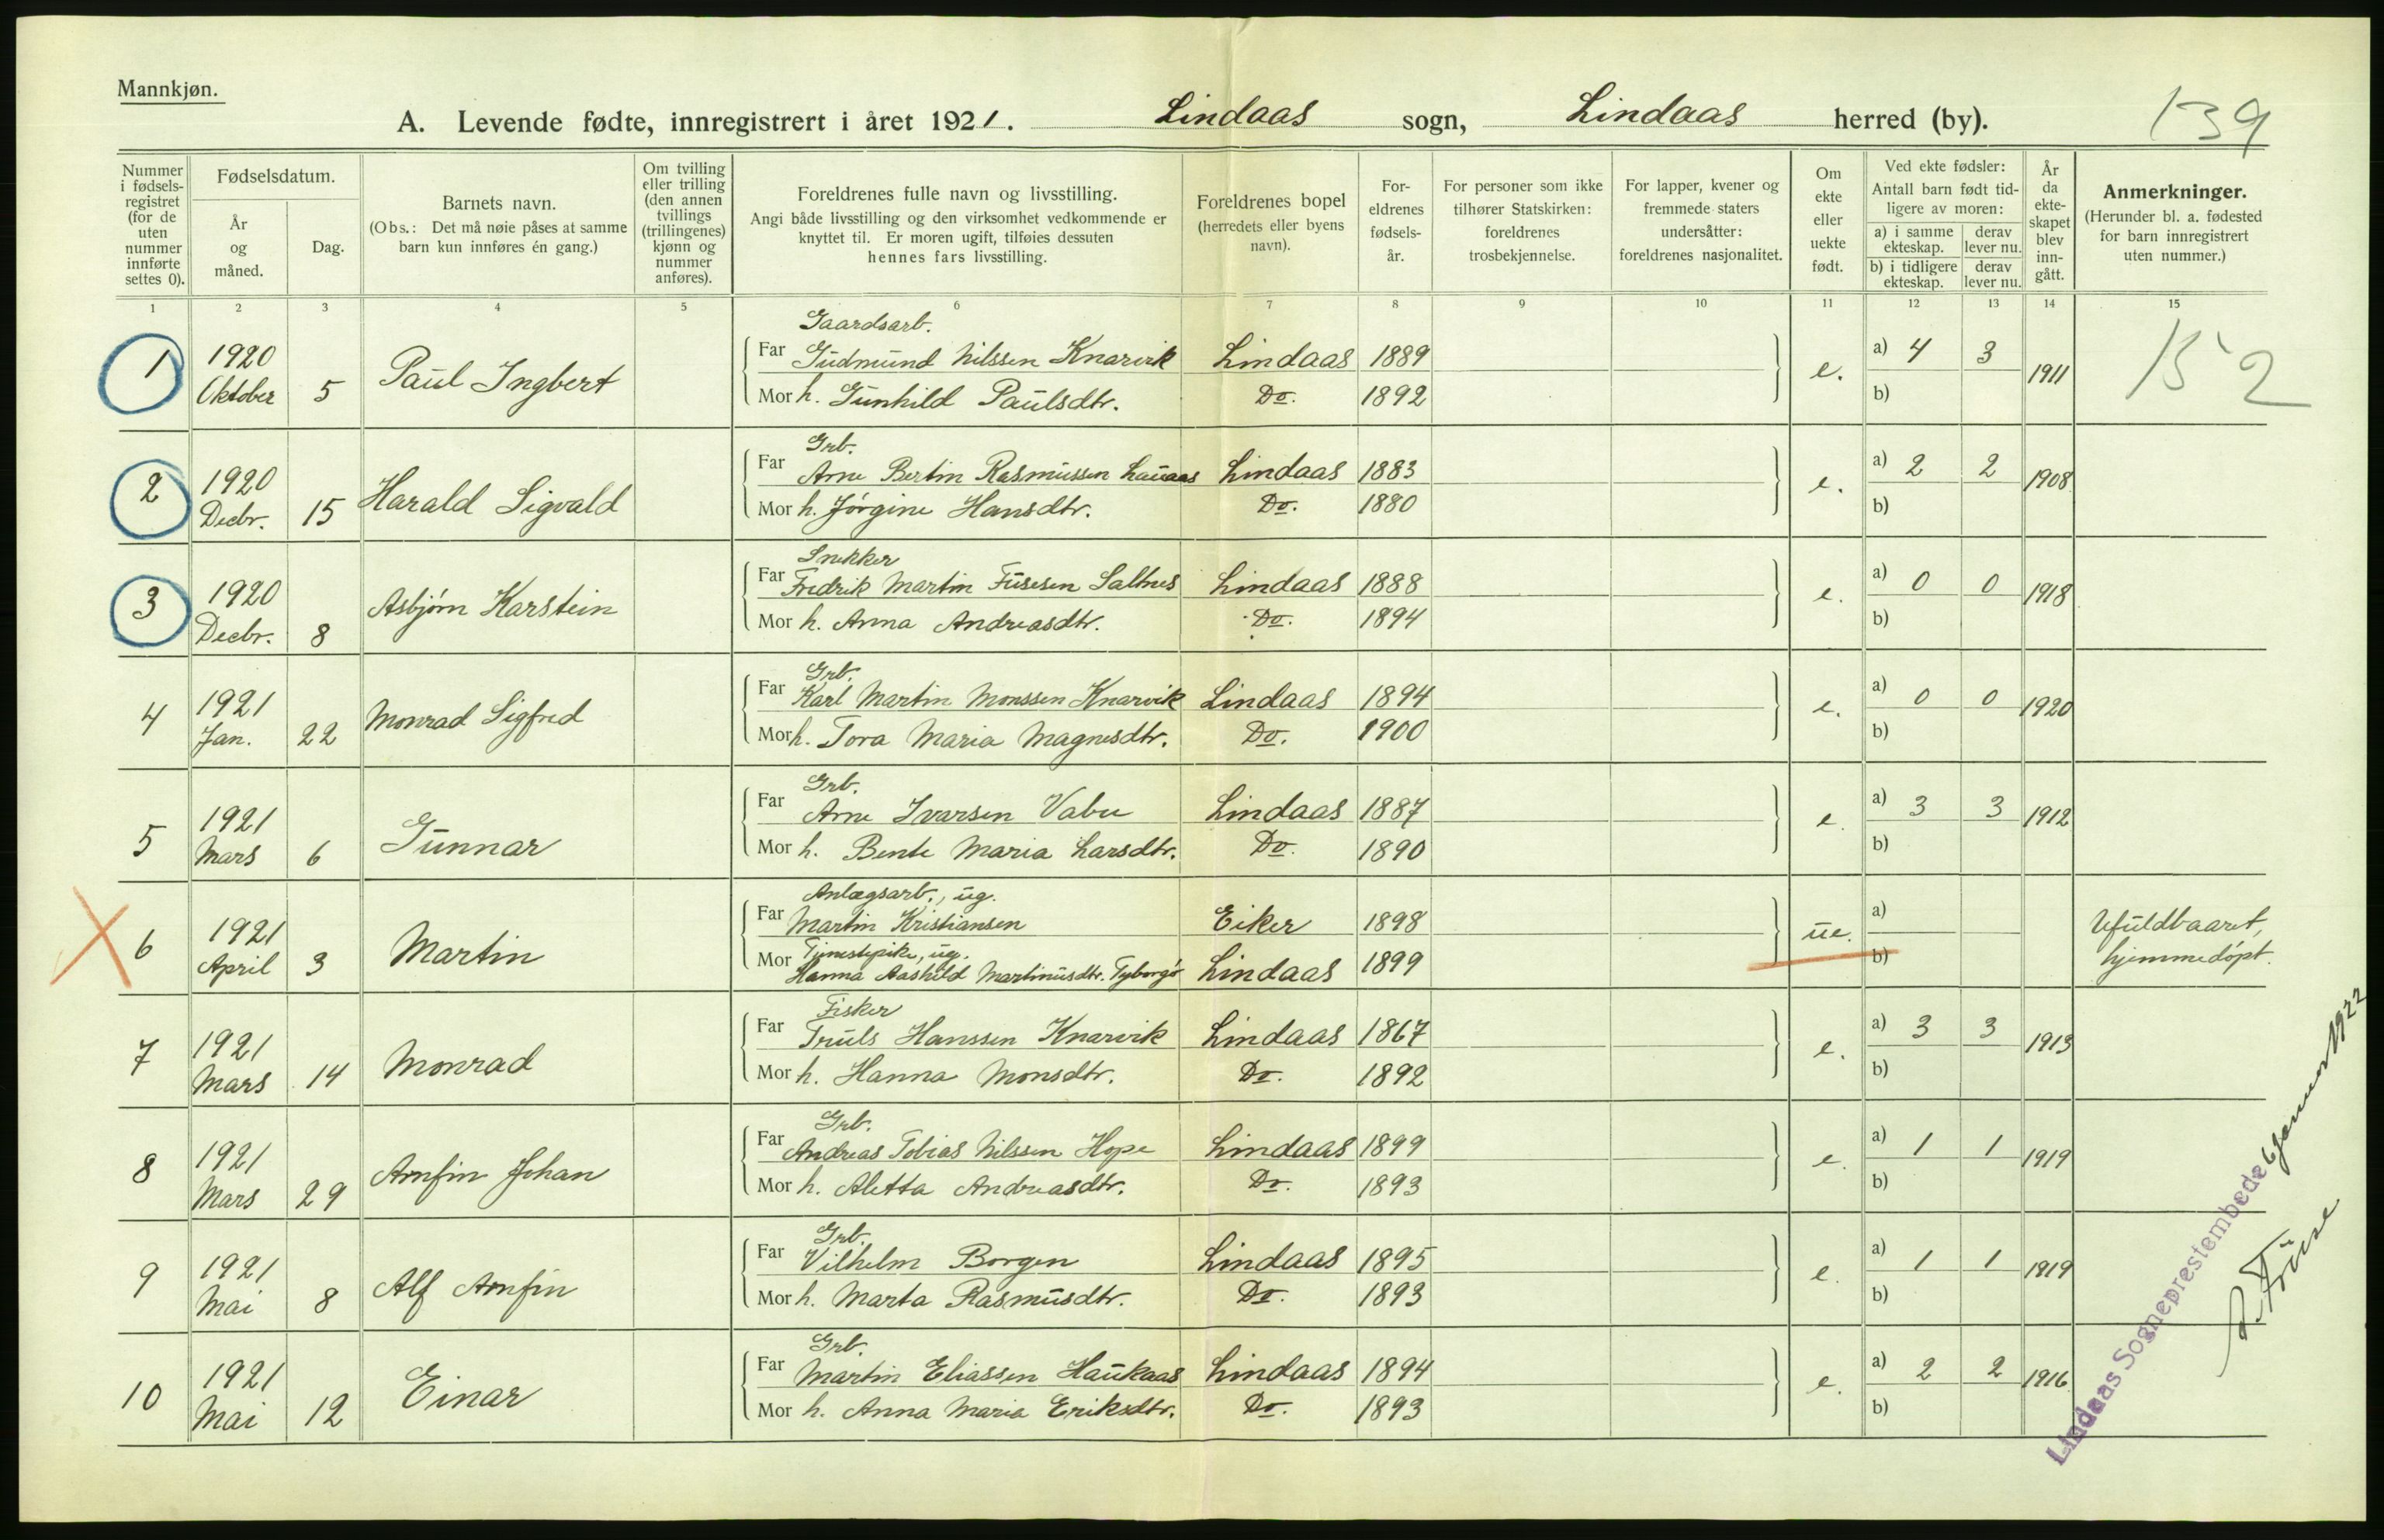 Mannkjøn.
A. Levende fødte, innregistrert i året 1921. Lindaas sogn, Lindaas herred (by).
139
Nummer i fødsels-registret (for de uten nummer innførte settes 0).
Fødselsdatum.
År og måned.
Dag.
Barnets navn.
(Obs.: Det må nøie påses at samme barn kun innføres én gang.)
Om tvilling eller trilling (den annen tvillings (trillingenes) kjønn og nummer anføres).
Foreldrenes fulle navn og livsstilling.
Angi både livsstilling og den virksomhet vedkommende er knyttet til. Er moren ugift, tilføies dessuten hennes fars livsstilling.
Foreldrenes bopel (herredets eller byens navn).
For-eldrenes fødsels-år.
For personer som ikke tilhører Statskirken: foreldrenes trosbekjennelse.
For lapper, kvener og fremmede staters undersåtter: foreldrenes nasjonalitet.
Om ekte eller uekte født.
Ved ekte fødsler:
Antall barn født tid-ligere av moren:
a) i samme ekteskap. derav lever nu.
b) i tidligere ekteskap. derav lever nu.
År da ekte-skapet blev inn-gått.
Anmerkninger.
(Herunder bl. a. fødested for barn innregistrert uten nummer.)
1 2 3 4 5 6 7 8 9 10 11 12 13 14 15
Gaardsarb.
1 1920 Oktober 5 Paul Ingbert Far Gudmund Nilssen Knarvik Lindaas 1889 e. a) 4 3 1911 152
Mor h. Gunhild Paulsdtr. Do. 1892 b)
Grb.
2 1920 Decbr. 15 Harald Sigvald Far Arne Bertin Rasmussen Lauaas Lindaas 1883 e. a) 2 2 1908
Mor h. Jørgine Hansdtr. Do. 1880 b)
Snekker
3 1920 Decbr. 8 Asbjørn Karstein Far Fredrik Martin Fusesen Saltnes Lindaas 1888 e. a) 0 0 1918
Mor h. Anna Andreasdtr. Do. 1894 b)
Grb.
4 1921 Jan. 22 Monrad Sigfred Far Karl Martin Monssen Knarvik Lindaas 1894 e. a) 0 0 1920
Mor h. Tora Maria Magnesdtr. Do. 1900 b)
Grb.
5 1921 Mars 6 Gunnar Far Arne Ivarsen Vabu Lindaas 1887 e. a) 3 3 1912
Mor h. Bente Maria Larsdtr. Do. 1890 b)
Anlægsarb., ug.
6 1921 April 3 Martin Far Martin Kristiansen Eiker 1898 ue. a) Ufuldbaaret,
Tjenestepike, ug.
Mor Hanna Aashild Martinusdtr. Lindaas 1899 b) hjemmedøpt.
Fisker
7 1921 Mars 14 Monrad Far Truls Hanssen Knarvik Lindaas 1867 e. a) 3 3 1913
Mor h. Hanna Monsdtr. Do. 1892 b)
Grb.
8 1921 Mars 29 Arnfin Johan Far Andreas Tobias Nilssen Hope Lindaas 1899 e. a) 1 1 1919
Mor h. Aletta Andreasdtr. Do. 1893 b)
Grb.
9 1921 Mai 8 Alf Arnfin Far Vilhelm Borgen Lindaas 1895 e. a) 1 1 1919
Mor h. Marta Rasmusdtr. Do. 1893 b)
Grb.
10 1921 Mai 12 Einar Far Martin Eliassen Haukaas Lindaas 1894 e. a) 2 2 1916
Mor h. Anna Maria Eriksdtr. Do. 1893 b)
Lindaas Sogneprestembede 6 Januar 1922